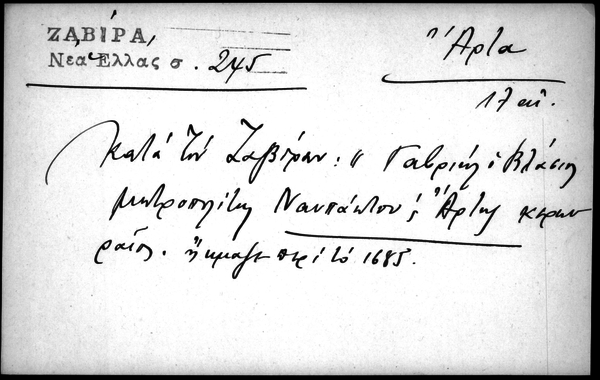 ΖΑΒΙΡΑ,
Νέα Ἑλλας σ. 245
Ἄρτα
17 αἰ.
Κατά τόν Ζαβίραν: "Γαβριήλ ὁ Βλάσιος
μητροπολίτης Ναυπάκτου & Ἄρτης κερκυ
ραῖος. ἤκμαζε περί τό 1685.